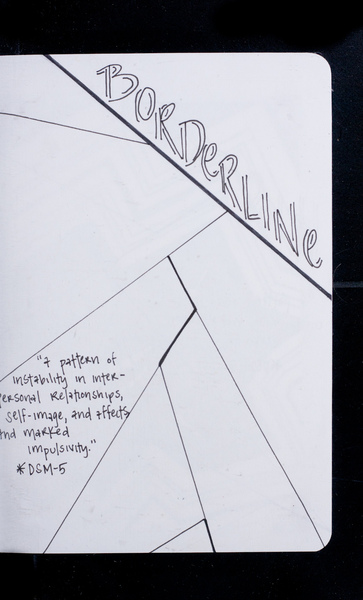 BORDERLINE
"a pattern of
instability in inter-
personal relationships,
self-image, and affects
and marked
impulsivity."
*DSM-5